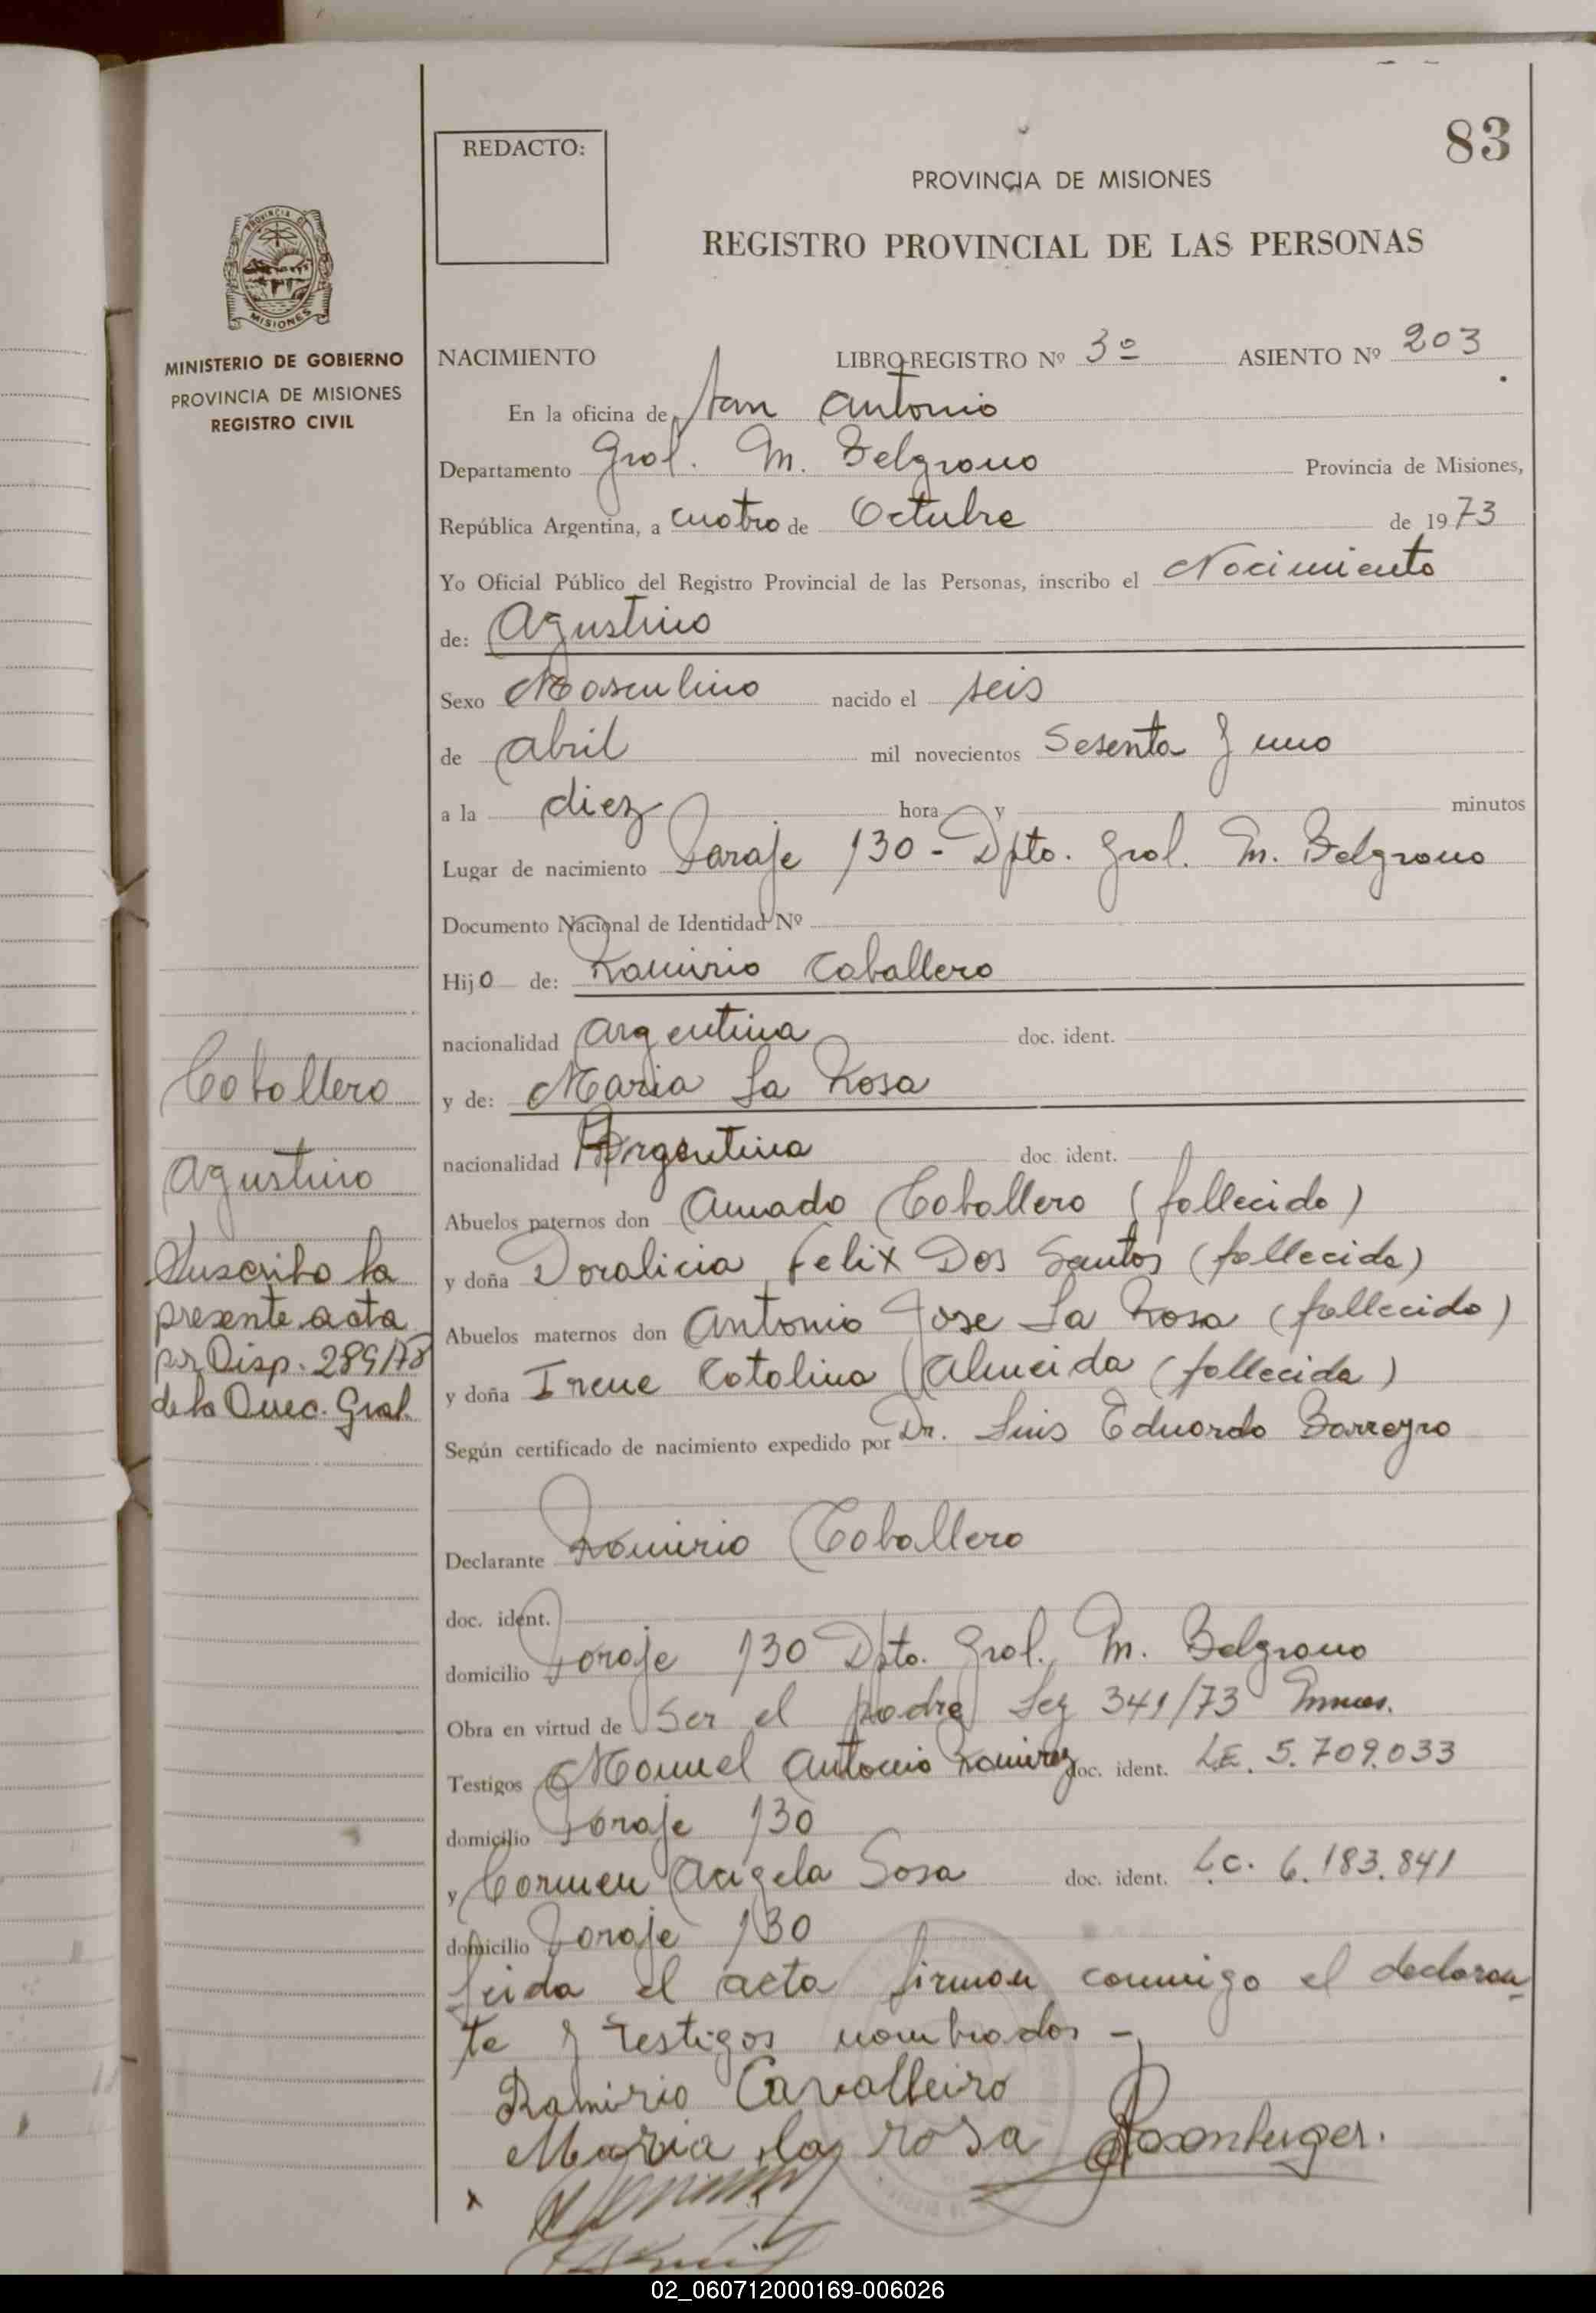 83
REDACTO:
PROVINCIA DE MISIONES
REGISTRO PROVINCIAL DE LAS PERSONAS
PROVINCIA DE
MISIONES
MINISTERIO DE GOBIERNO
PROVINCIA DE MISIONES
REGISTRO CIVIL
NACIMIENTO LIBRO-REGISTRO Nº 3º ASIENTO Nº 203
En la oficina de San Antonio
Departamento Gral. M. Belgrano Provincia de Misiones,
República Argentina, a cuatro de Octubre de 1973
Yo Oficial Público del Registro Provincial de las Personas, inscribo el Nacimiento
de: Agustino
Sexo Masculino nacido el seis
de abril mil novecientos Sesenta y uno
a la diez hora y minutos
Lugar de nacimiento Paraje 130 - Dpto. Gral. M. Belgrano
Documento Nacional de Identidad Nº
Hijo de: Ramirio Caballero
nacionalidad Argentina doc. ident.
y de: Maria La Rosa
nacionalidad Argentina doc. ident.
Abuelos paternos don Amado Caballero (fallecido)
y doña Doralicia Felix Dos Santos (fallecida)
Abuelos maternos don Antonio Jose La Rosa (fallecido)
y doña Irene Catalina Almeida (fallecida)
Según certificado de nacimiento expedido por Dr. Luis Eduardo Barreyro
Declarante Ramirio Caballero
doc. ident.
domicilio Paraje 130 Dpto. Gral. M. Belgrano
Obra en virtud de Ser el padre Ley 341/73
Testigos Manuel Antonio Ramirez doc. ident. L.E. 5.709.033
domicilio Paraje 130
y Carmen Angela Sosa doc. ident. L.C. 6.183.841
domicilio Paraje 130
Leida el acta firman conmigo el declaran-
te y testigos nombrados -
Ramirio Cavalleiro
Maria la rosa
Caballero
Agustino
Suscribo la
presente acta
por Disp. 289/78
de la Direc. Gral.
02_060712000169-006026